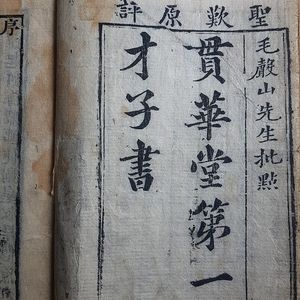 聖歎原評
毛聲山先生批點
貫華堂第一
才子書
序